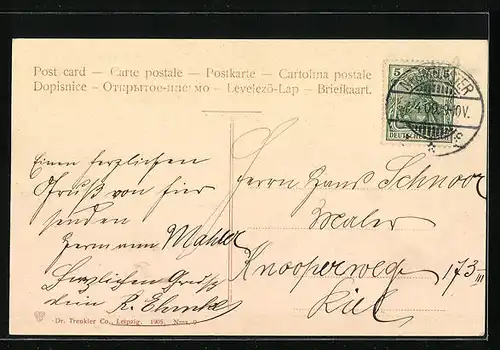 Post card – Carte postale – Postkarte – Cartolina postale
Dopisnice – Открытое-письмо – Levelező-Lap – Briefkaart.
5
DEUTSCHES REICH
Einen herzlichen
Gruß von hier
senden
Hermann Mahler
Herzlichen Gruß
dein R. Ehmke
Herrn Hans Schnoor
Maler
Knooperweg 173 III
Kiel
Dr. Trenkler Co., Leipzig. 1905.